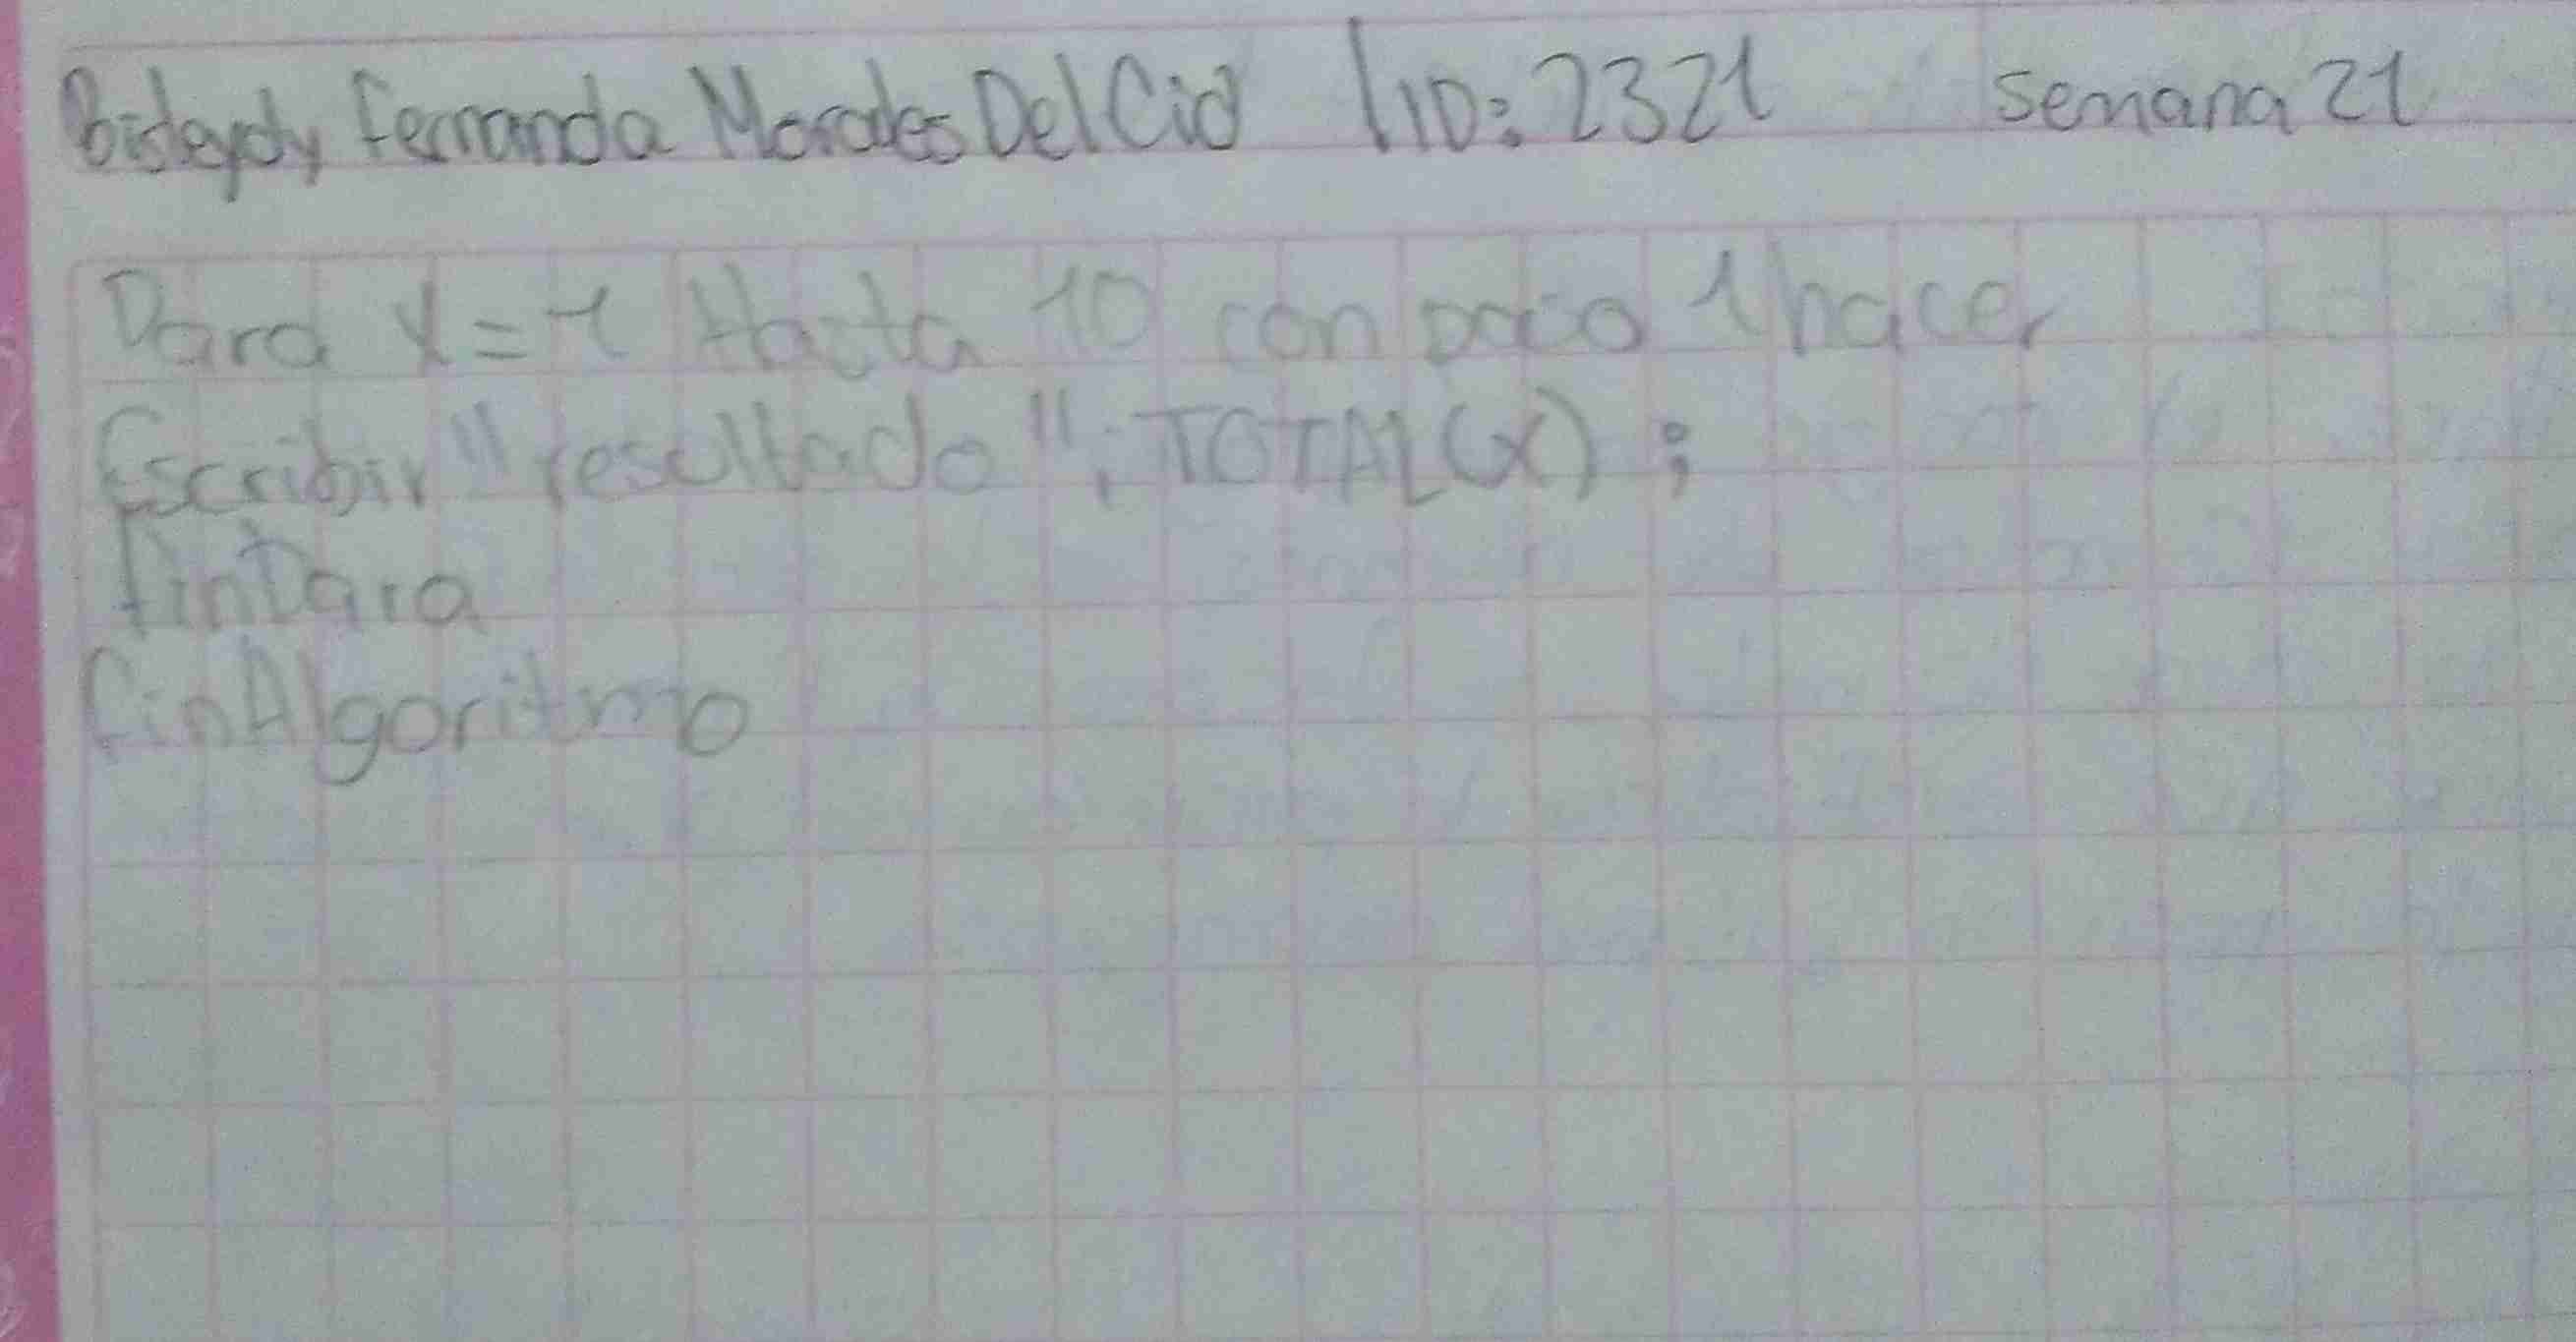 Bisleydy Fernanda Morales Del Cid | ID: 2321 semana 21
Para X = 1 Hasta 10 con paso 1 hacer
Escribir "resultado", TOTAL(X);
finPara
finAlgoritmo